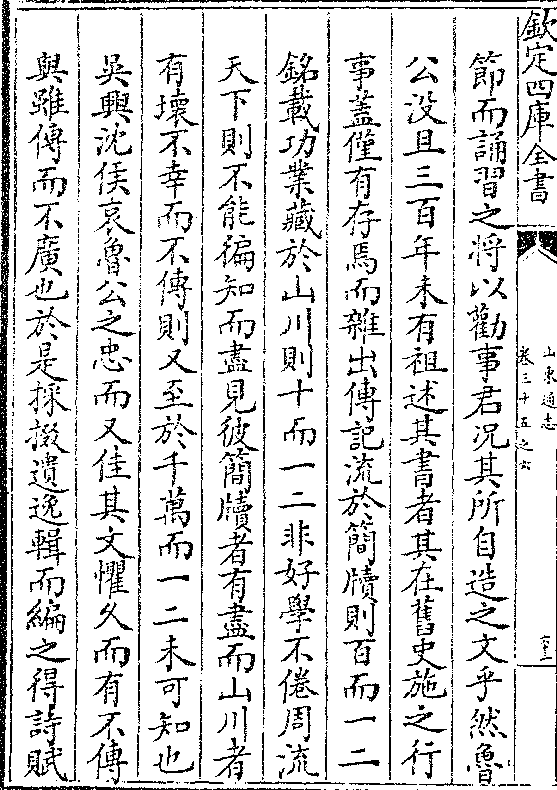 欽定四庫全書
山東通志
卷三十五之六
節而誦習之將以勸事君況其所自造之文乎然魯
公没且三百年未有祖述其書者其在舊史施之行
事蓋僅有存焉而雜出傳記流於簡牘則百而一二
銘載功業藏於山川則十而一二非好學不倦周流
天下則不能徧知而盡見彼簡牘者有盡而山川者
有壞不幸而不傳則又至於千萬而一二未可知也
吳興沈侯哀魯公之忠而又佳其文懼久而有不傳
與雖傳而不廣也於是採掇遺逸輯而編之得詩賦